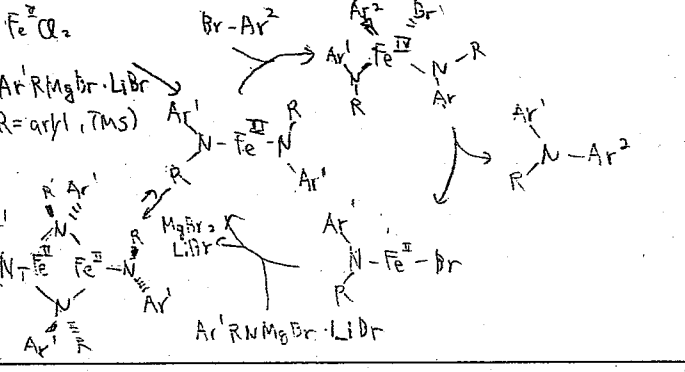 Fe^II Cl₂
Br-Ar²
Ar² Br
Ar' Fe^IV R
N N
R Ar
Ar'RMgBr·LiBr
R=aryl, TMS)
Ar' R
N-Fe^II-N
R Ar'
Ar'
N-Ar²
R
R Ar'
N
N-Fe^II Fe^II-N
R
Ar'
N
Ar' R
MgBr₂
LiBr
Ar'
N-Fe^II-Br
R
Ar'RNMgBr·LiBr